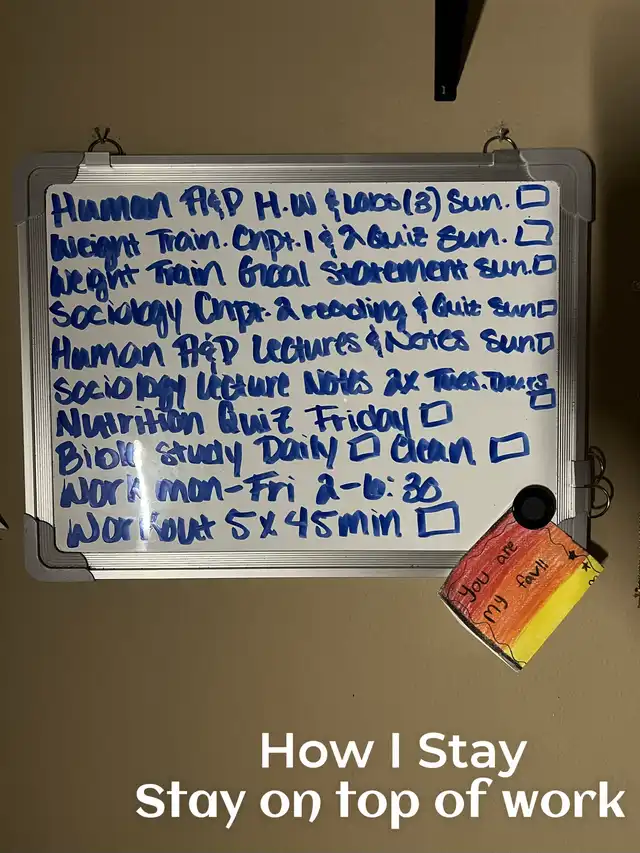 Human A&P H.W & Labs(3) Sun.
Weight Train. Chpt. 1 & 2 Quiz Sun.
Weight Train Goal Statement Sun.
Sociology Chpt. 2 reading & Quiz Sun
Human A&P Lectures & Notes Sun
Sociology Lecture Notes 2x Tues. Thurs
Nutrition Quiz Friday
Bible Study Daily Clean
Work mon-Fri 2-6:30
Workout 5x45min
You are
my fav!!
How I Stay
Stay on top of work